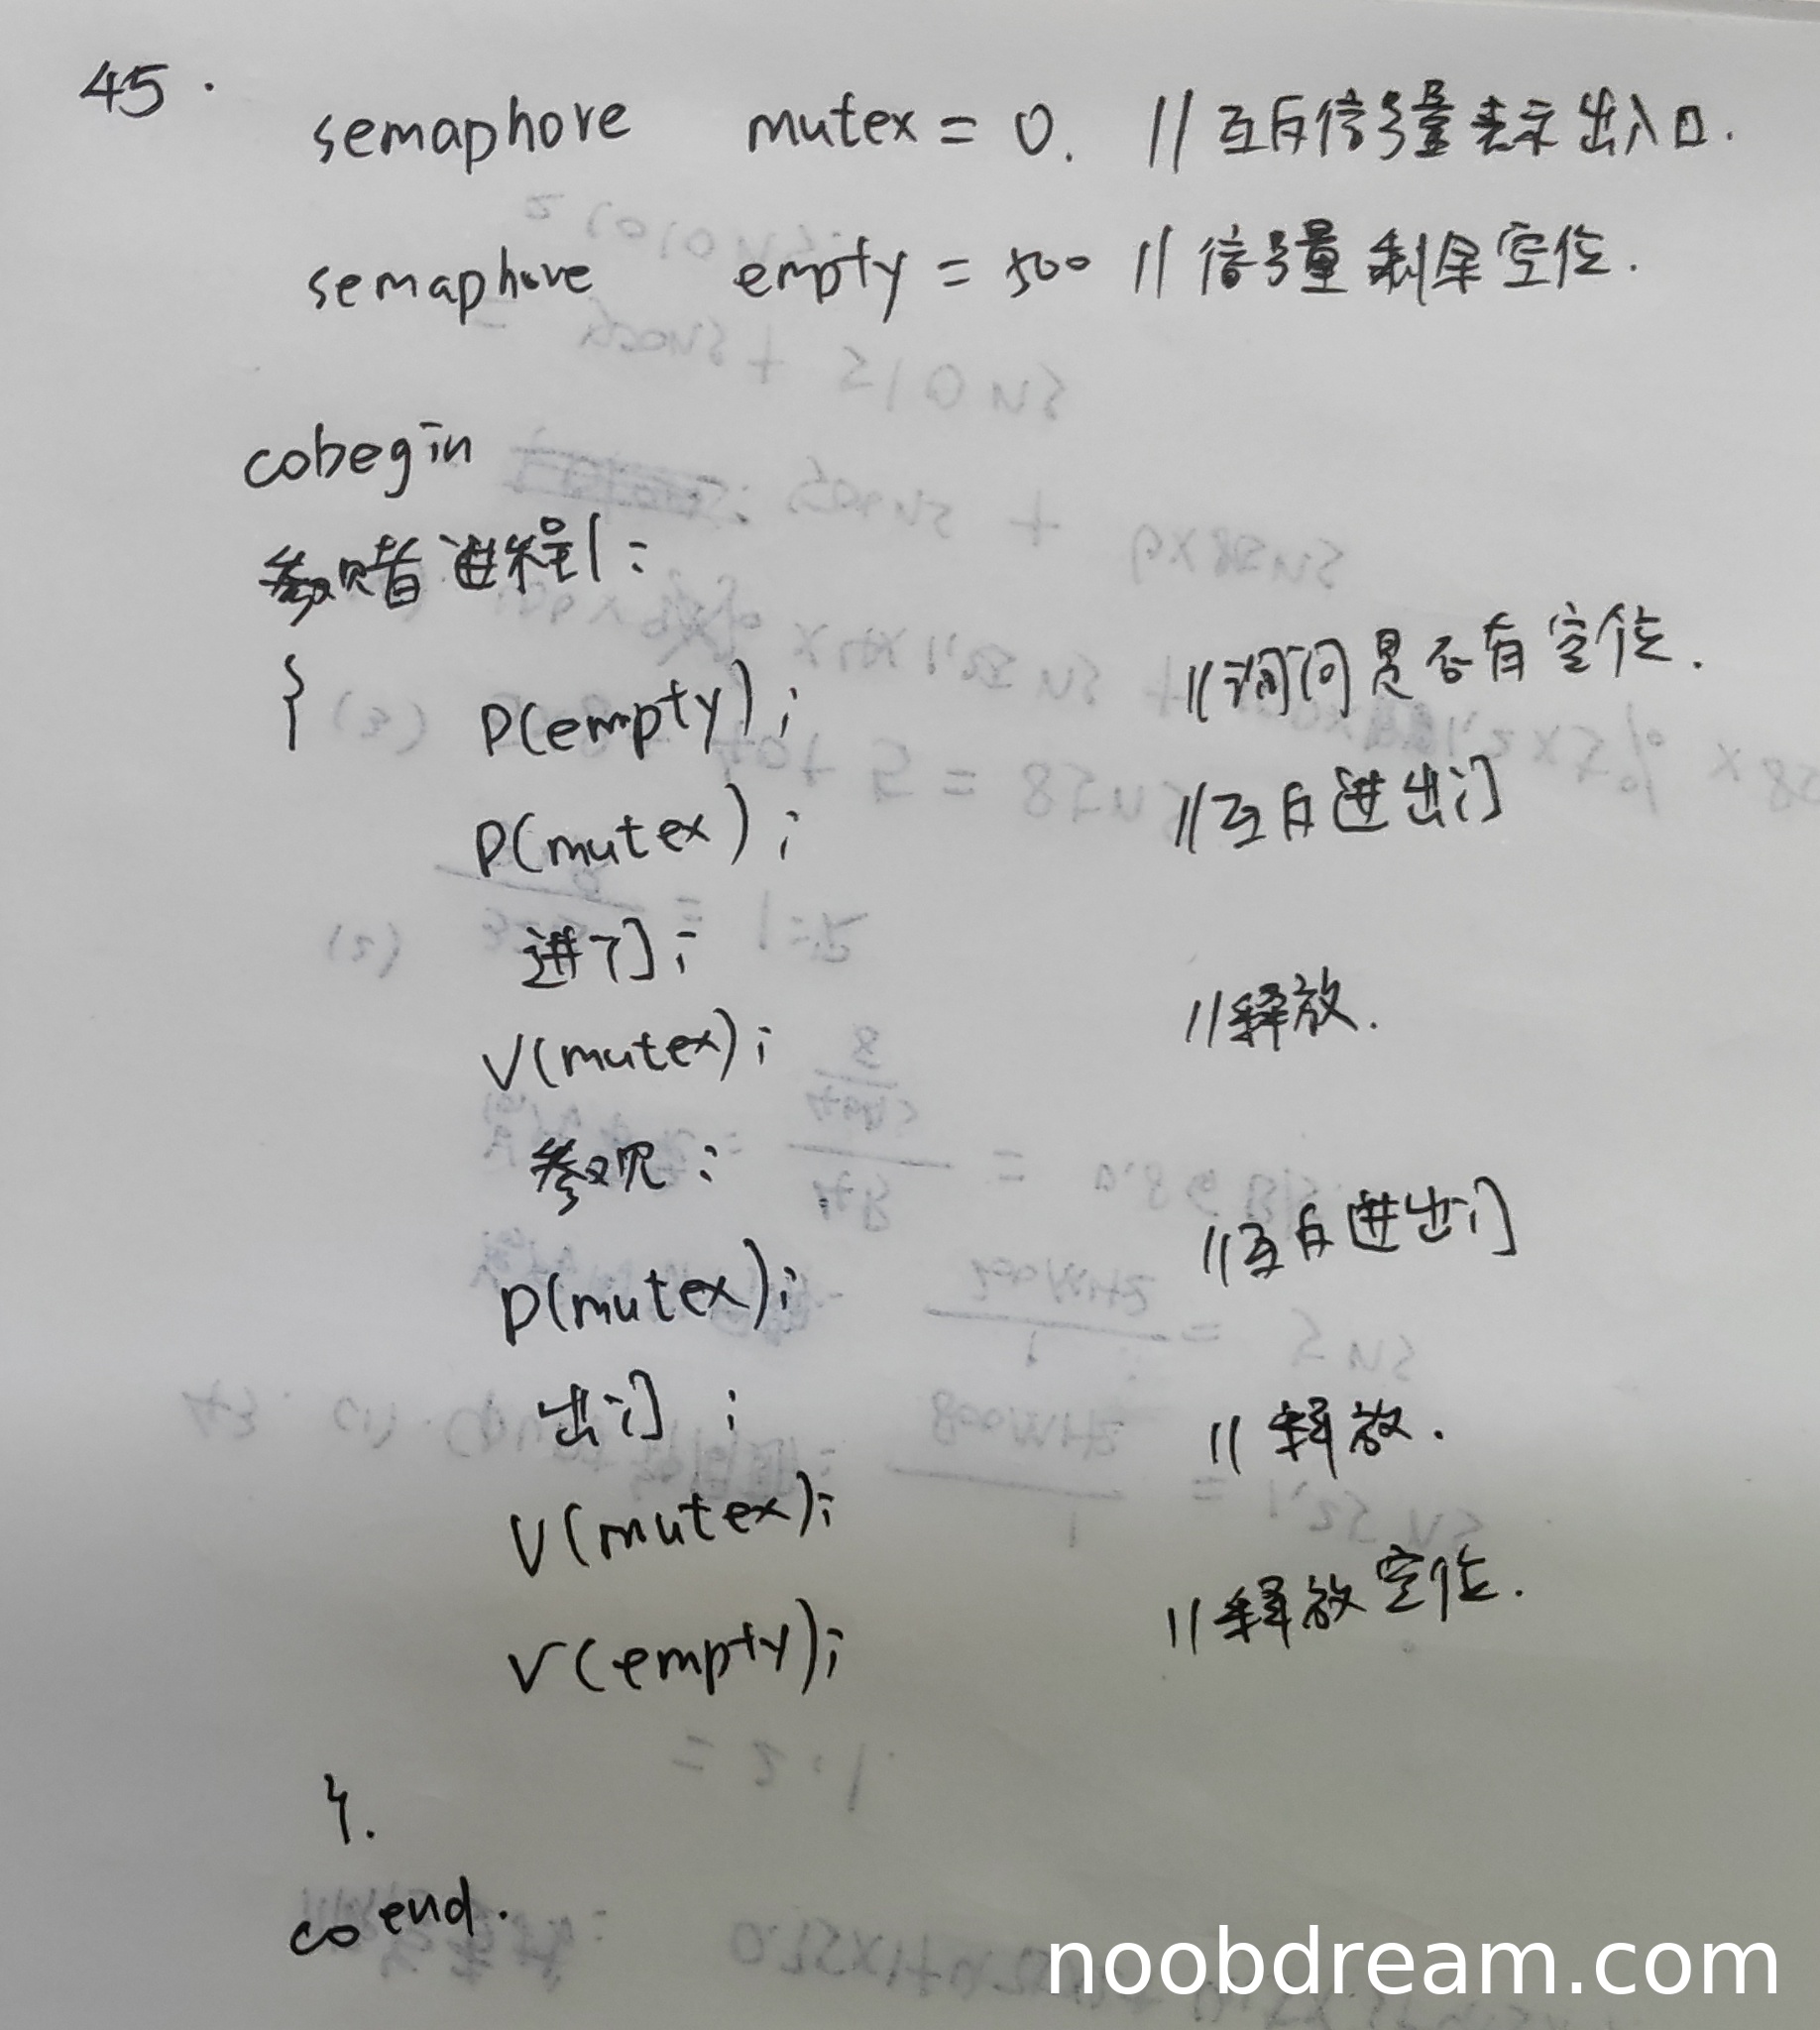 45.
semaphore mutex = 0. //互斥信号量表示出入口.
semaphore empty = 500 //信号量剩余空位.
cobegin
参观者进程i:
{ P(empty); //询问是否有空位.
P(mutex); //互斥进出门
进门;
V(mutex); //释放.
参观;
P(mutex); //互斥进出门
出门;
V(mutex); //释放.
V(empty); //释放空位.
}.
coend.
noobdream.com